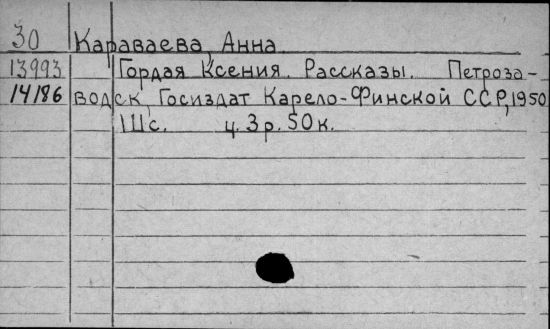 30 Караваева, Анна.
13993 Гордая Ксения. Рассказы. Петроза-
14186 водск, Госиздат Карело-Финской ССР, 1950
111с. ц. 3р. 50к.